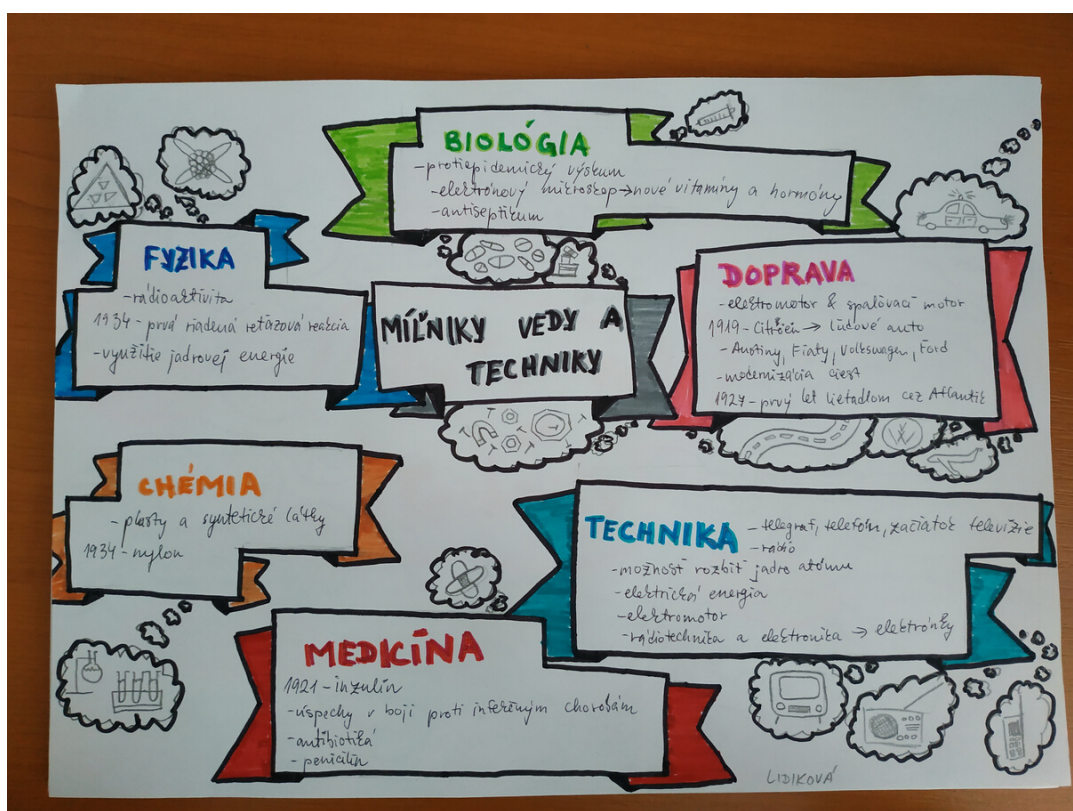 BIOLÓGIA
-protiepidemický výskum
-elektrónový mikroskop→nové vitamíny a hormóny
-antiseptikum
FYZIKA
-rádioaktivita
1934-prvá riadená reťazová reakcia
-využitie jadrovej energie
MÍĽNIKY VEDY A
TECHNIKY
DOPRAVA
-elektromotor & spaľovací motor
1919-Citröen → ľudové auto
-Austiny, Fiaty, Volkswagen, Ford
-modernizácia ciest
1927-prvý let lietadlom cez Atlantik
CHÉMIA
-plasty a syntetické látky
1934-nylon
TECHNIKA
-telegraf, telefón, začiatok televízie
-rádio
-možnosť rozbiť jadro atómu
-elektrická energia
-elektromotor
-rádiotechnika a elektronika → elektrónky
MEDICÍNA
1921-inzulín
-úspechy v boji proti infekčným chorobám
-antibiotiká
-penicilín
LIDIKOVÁ